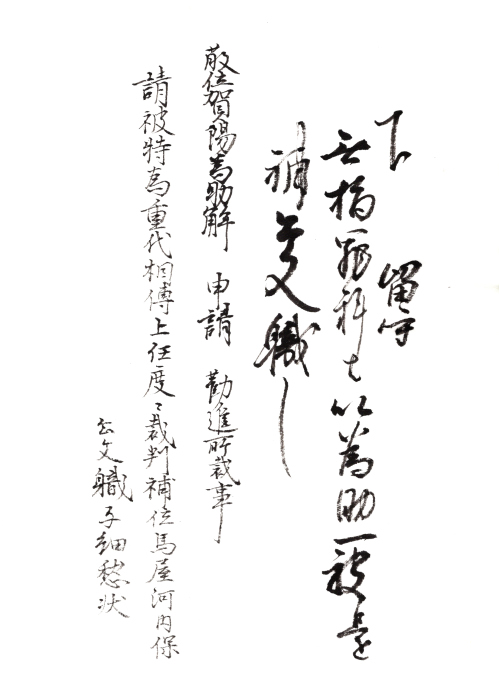 下 留守
无指罪科者以為助可被還
補公文職之
散位賀陽為助解 申請 勸進所裁事
請被特為重代相傳上任度〻裁判補任馬屋河内保
公文職子細愁状